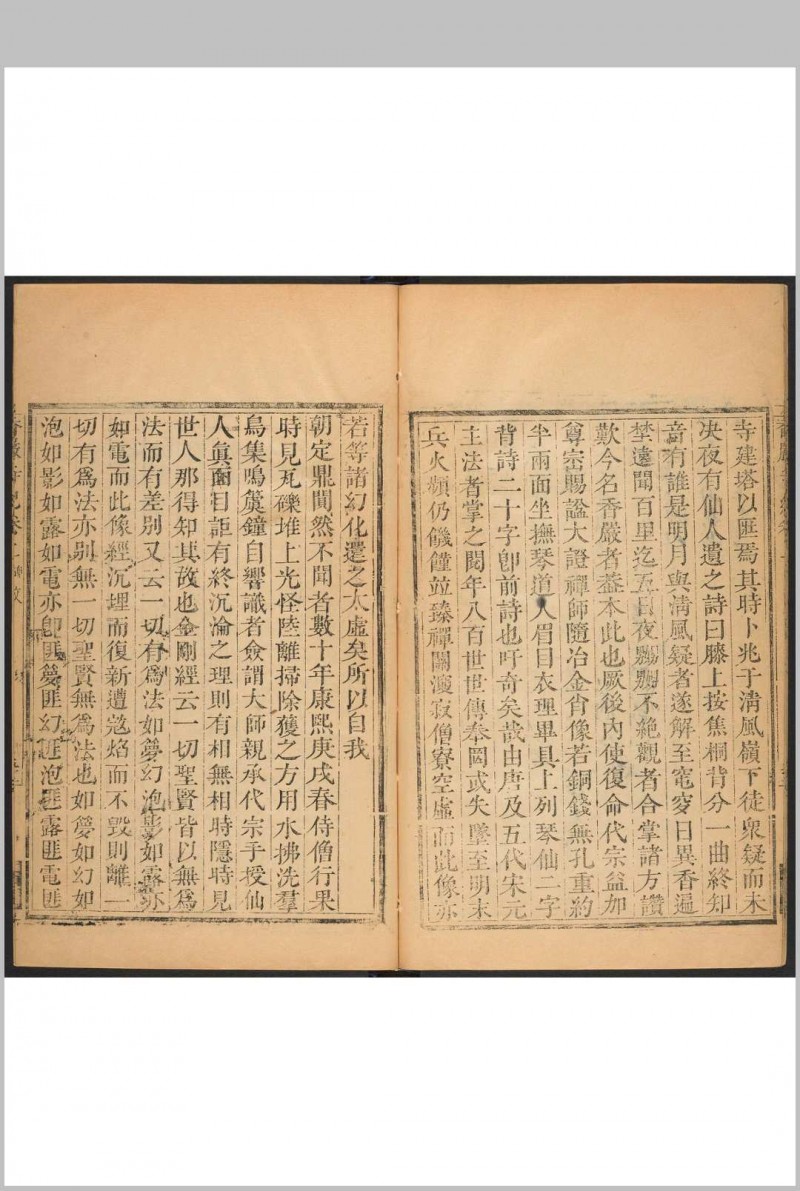 寺建塔以匪焉其時卜兆于清風嶺下徒衆疑而未
决夜有仙人遺之詩曰膝上按焦桐背分一曲終知
音有誰是明月與清風疑者遂解至窀穸日異香遍
埜遠聞百里迄五日夜飄飄不絶觀者合掌諸方讚
歎今名香嚴者葢本此也厥後內使復命代宗益加
尊崇賜諡大證禪師隨冶金肖像若銅錢無孔重約
半兩面坐撫琴道人眉目衣理畢具上列琴仙二字
背詩二十字卽前詩也吁奇矣哉由唐及五代宋元
主法者掌之閱年八百世世傳奉罔或失墜至明末
兵火頻仍饑饉竝臻禪關寂僧寮空虛而此像亦
若等諸幻化還之太虛矣所以自我
朝定鼎閴然不聞者數十年康熙庚戌春侍僧行果
時見瓦礫堆上光怪陸離掃除獲之方用水拂洗羣
鳥集鳴簴鐘自響識者僉謂大師親承代宗手授仙
人眞面目詎有終沉淪之理則有相無相時隱時見
世人那得知其故也金剛經云一切聖賢皆以無爲
法而有差别又云一切有爲法如夢幻泡影如露亦
如電而此像經沉埋而復新遭寇焰而不毁則離一
切有爲法亦别無一切聖賢無爲法也如夢如幻如
泡如影如露如電亦卽匪夢匪幻匪泡匪露匪電匪